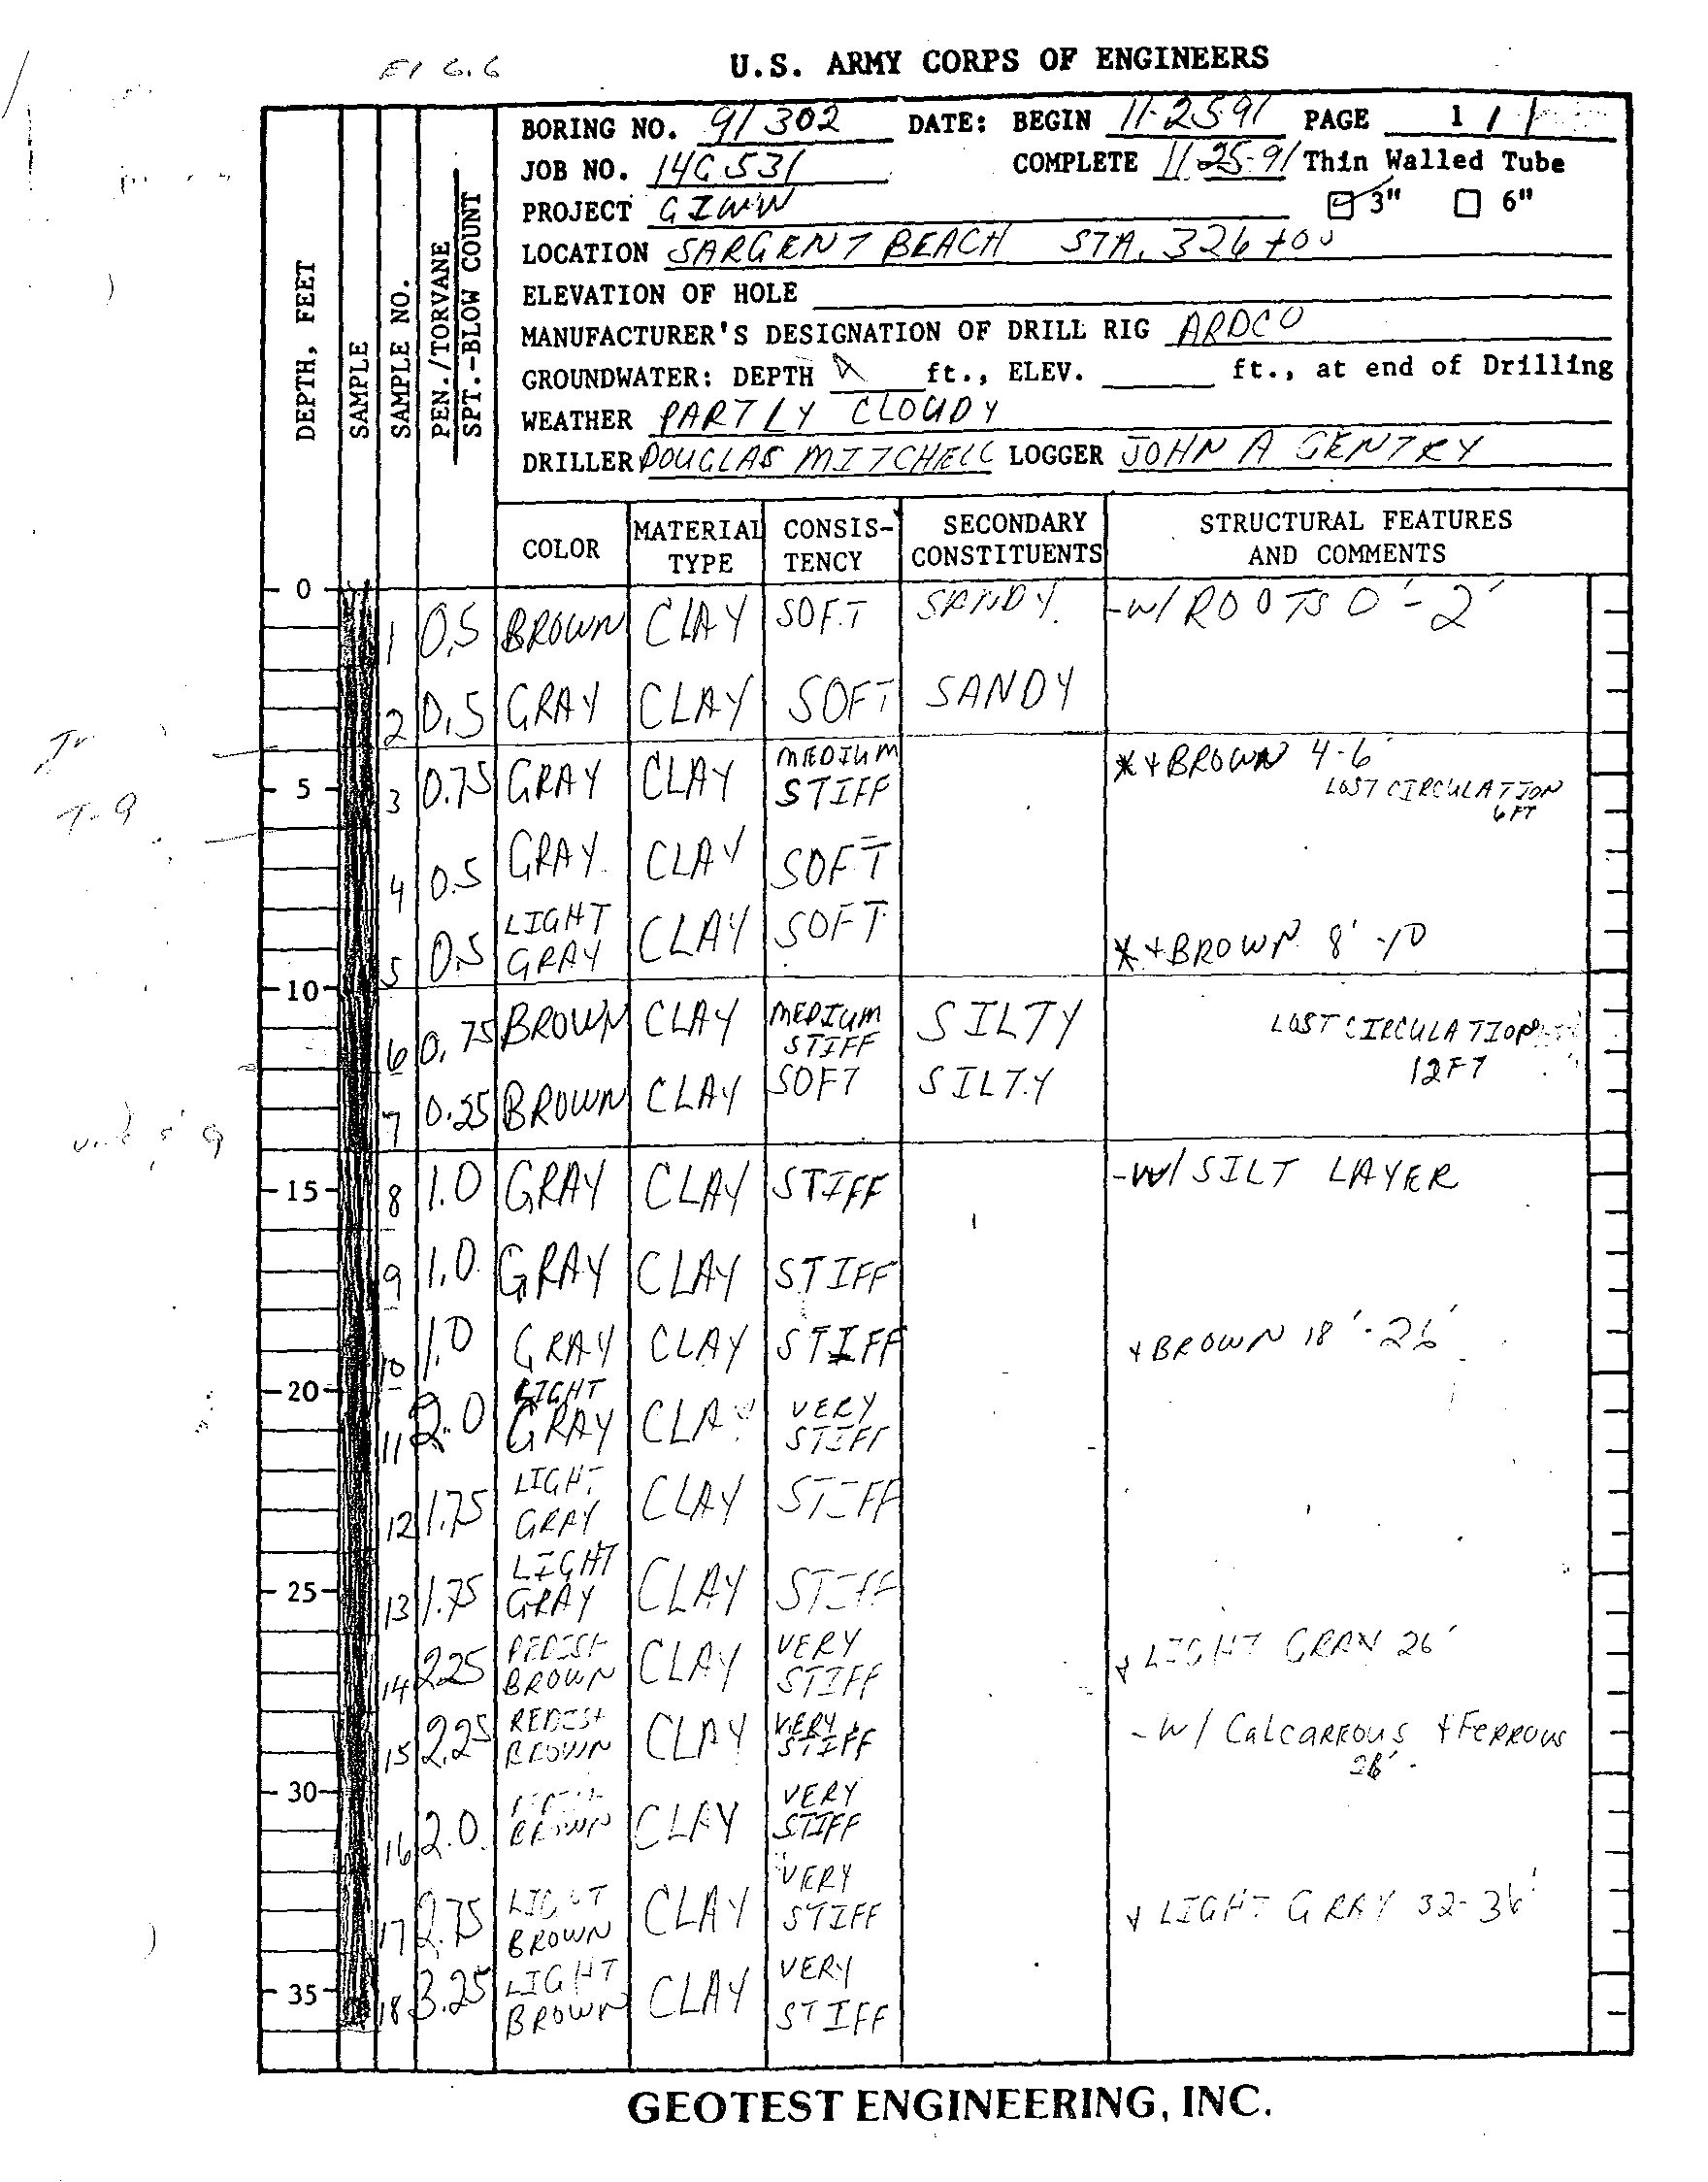 El 6.6
U.S. ARMY CORPS OF ENGINEERS
BORING NO. 91 302 DATE: BEGIN 11-25-91 PAGE 1 / 1
JOB NO. 14G531 COMPLETE 11-25-91 Thin Walled Tube
PROJECT GIWW 3" 6"
LOCATION SARGENT BEACH STA. 326+00
ELEVATION OF HOLE
MANUFACTURER'S DESIGNATION OF DRILL RIG ARDCO
GROUNDWATER: DEPTH ft., ELEV. ft., at end of Drilling
WEATHER PARTLY CLOUDY
DRILLER DOUGLAS MITCHELL LOGGER JOHN A GENTRY
DEPTH, FEET
SAMPLE
SAMPLE NO.
PEN./TORVANE
SPT.-BLOW COUNT
COLOR MATERIAL TYPE CONSIS-TENCY SECONDARY CONSTITUENTS STRUCTURAL FEATURES AND COMMENTS
0
1 0.5 BROWN CLAY SOFT SANDY -W/ ROOTS 0'-2'
2 0.5 GRAY CLAY SOFT SANDY
5 3 0.75 GRAY CLAY MEDIUM STIFF *+BROWN 4-6'
LOST CIRCULATION
6 FT
4 0.5 GRAY CLAY SOFT
5 0.5 LIGHT GRAY CLAY SOFT *+BROWN 8'-10
10
6 0.75 BROWN CLAY MEDIUM STIFF SILTY LOST CIRCULATION
12 FT
7 0.25 BROWN CLAY SOFT SILTY
15 8 1.0 GRAY CLAY STIFF -W/ SILT LAYER
9 1.0 GRAY CLAY STIFF
10 1.0 GRAY CLAY STIFF +BROWN 18'-26'
20
11 2.0 LIGHT GRAY CLAY VERY STIFF
12 1.75 LIGHT GRAY CLAY STIFF
25 13 1.75 LIGHT GRAY CLAY STIFF
14 2.25 REDISH BROWN CLAY VERY STIFF + LIGHT GRAY 26'
15 2.25 REDISH BROWN CLAY VERY STIFF -W/ CALCAREOUS +FERROUS
28'
30
16 2.0 REDISH BROWN CLAY VERY STIFF
17 2.75 LIGHT BROWN CLAY VERY STIFF + LIGHT GRAY 32-36'
35 18 3.25 LIGHT BROWN CLAY VERY STIFF
GEOTEST ENGINEERING, INC.